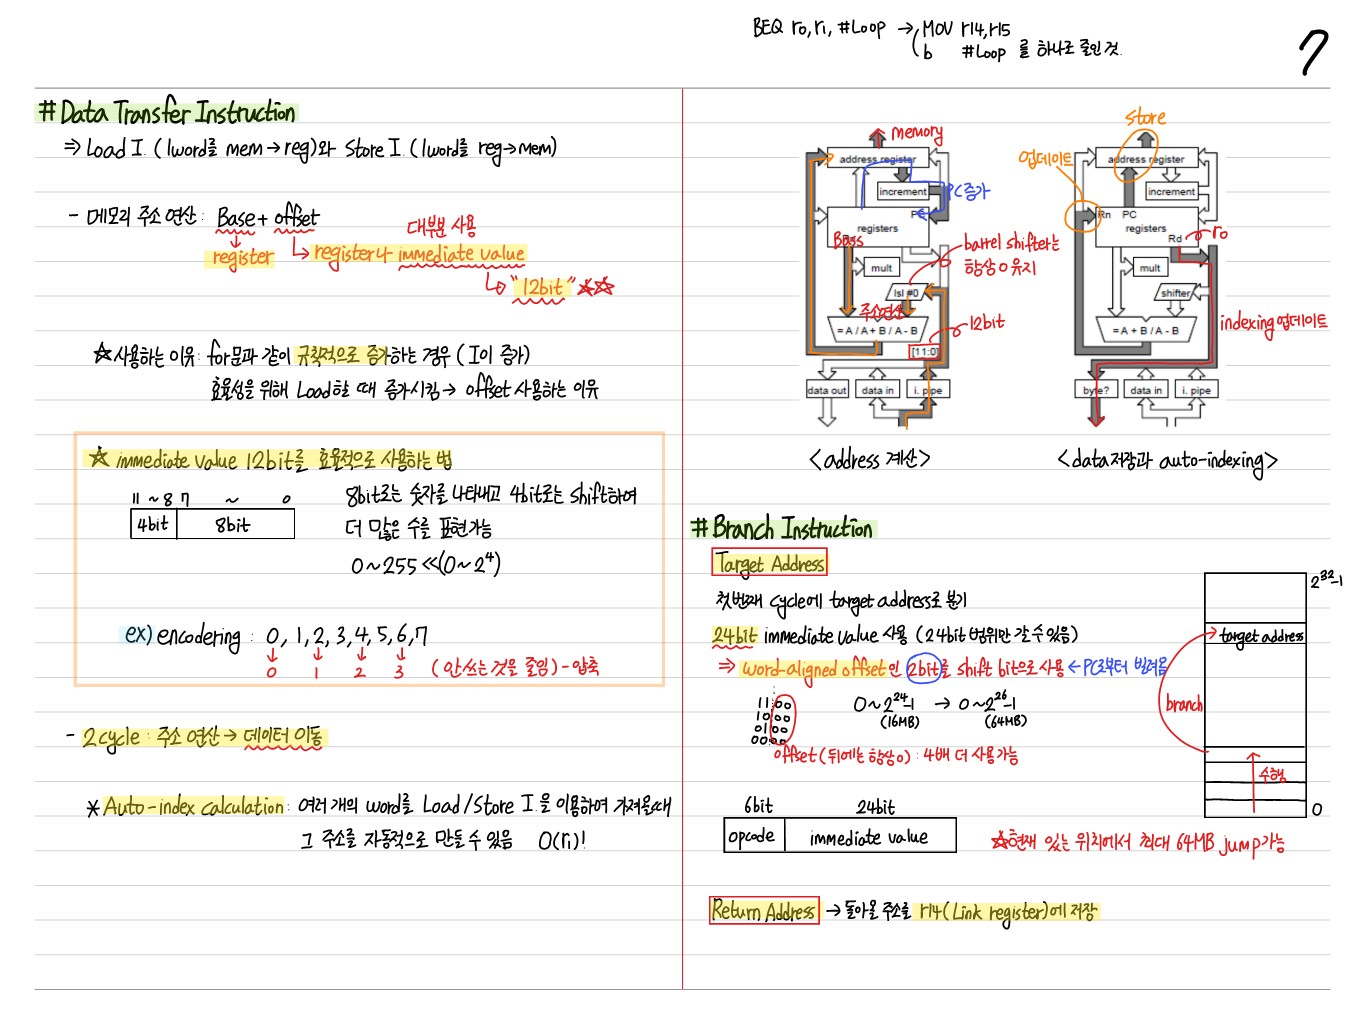 BEQ r0, r1, #Loop → MOV r14, r15
b #Loop 를 하나로 줄인 것.
7
# Data Transfer Instruction
⇒ Load I. (1word를 mem → reg)와 Store I. (1word를 reg → mem)
- 메모리 주소 연산 : Base + offset
대부분 사용
register
register나 immediate value
"12bit" ☆☆
☆사용하는 이유 : for문과 같이 규칙적으로 증가하는 경우 (I이 증가)
효율성을 위해 Load할 때 증가시킴 → offset 사용하는 이유
☆ immediate value 12bit를 효율적으로 사용하는 법
11 ~ 8 7 ~ 0
4bit 8bit
8bit로는 숫자를 나타내고 4bit로는 shift하여
더 많은 수를 표현가능
0 ~ 255 << (0 ~ 2⁴)
ex) encodering : 0, 1, 2, 3, 4, 5, 6, 7
0 1 2 3 (안쓰는 것을 줄임) - 압축
- 2cycle : 주소 연산 → 데이터 이동
* Auto-index calculation : 여러 개의 word를 Load/Store I.을 이용하여 가져올때
그 주소를 자동적으로 만들 수 있음 0(r1)!
memory
address register
increment
PC증가
PC
registers
Bass
mult
barrel shifter는
항상 0 유지
lsl #0
주소연산
= A / A + B / A - B
12bit
[11:0]
data out
data in
i. pipe
<address 계산>
store
업데이트
address register
increment
Rn PC
registers
Rd
r0
mult
shifter
= A + B / A - B
indexing 업데이트
byte?
data in
i. pipe
<data 저장과 auto-indexing>
# Branch Instruction
Target Address
첫번째 cycle에 target address로 분기
24bit immediate value 사용 (24bit 범위만 갈 수 있음)
⇒ word-aligned offset인 2bit를 shift bit으로 사용 ← PC로부터 빌려옴
11 00
10 00
01 00
00 00
0 ~ 2²⁴-1 → 0 ~ 2²⁶-1
(16MB) (64MB)
offset (뒤에는 항상 0) : 4배 더 사용가능
6bit 24bit
opcode immediate value
2³²-1
target address
branch
수행
0
☆현재 있는 위치에서 최대 64MB jump 가능
Return Address → 돌아올 주소를 r14 (Link register)에 저장